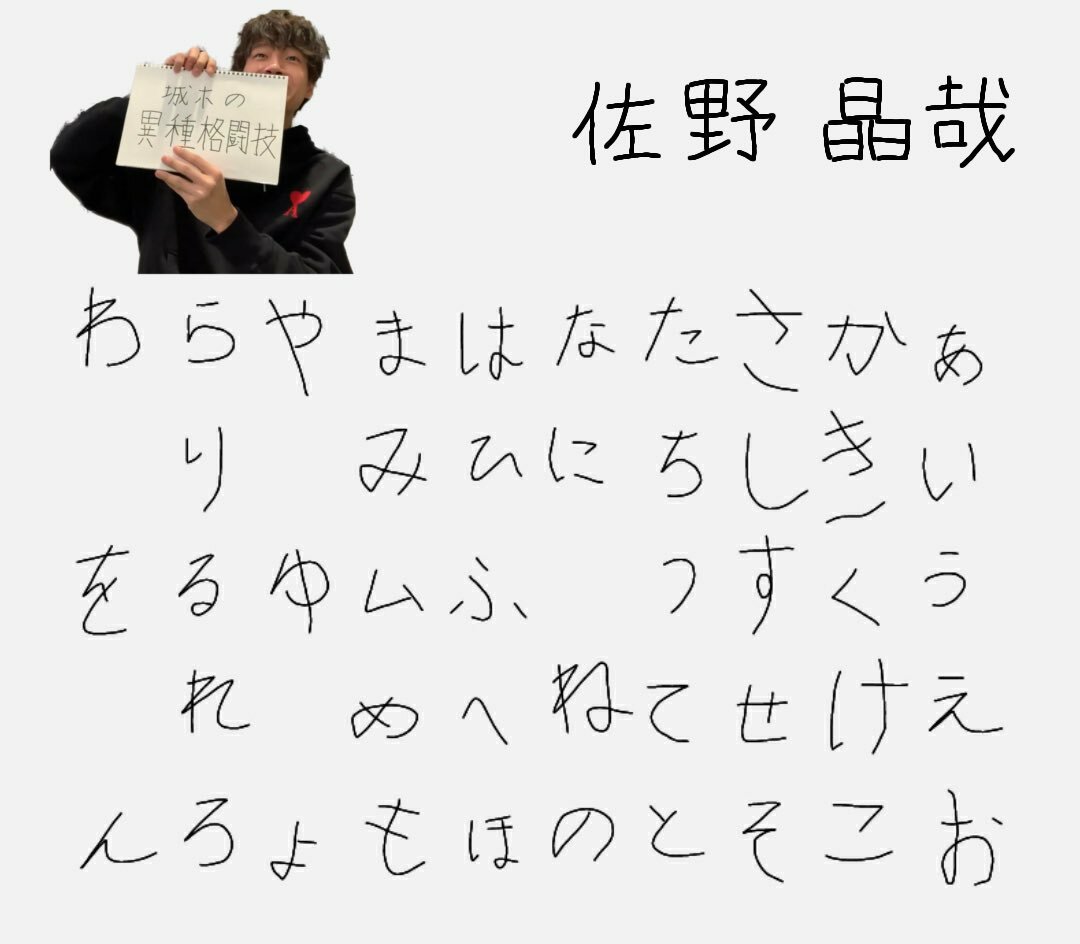 城ホの
異種格闘技
佐野 晶哉
あいうえお
かきくけこ
さしすせそ
たちつてと
なにねの
はひふへほ
まみムめも
やゆよ
らりるれろ
わをん